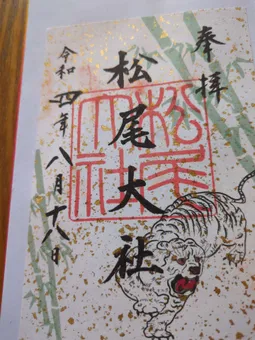 奉拝
松尾大社
令和四年八月十八日
松尾大社